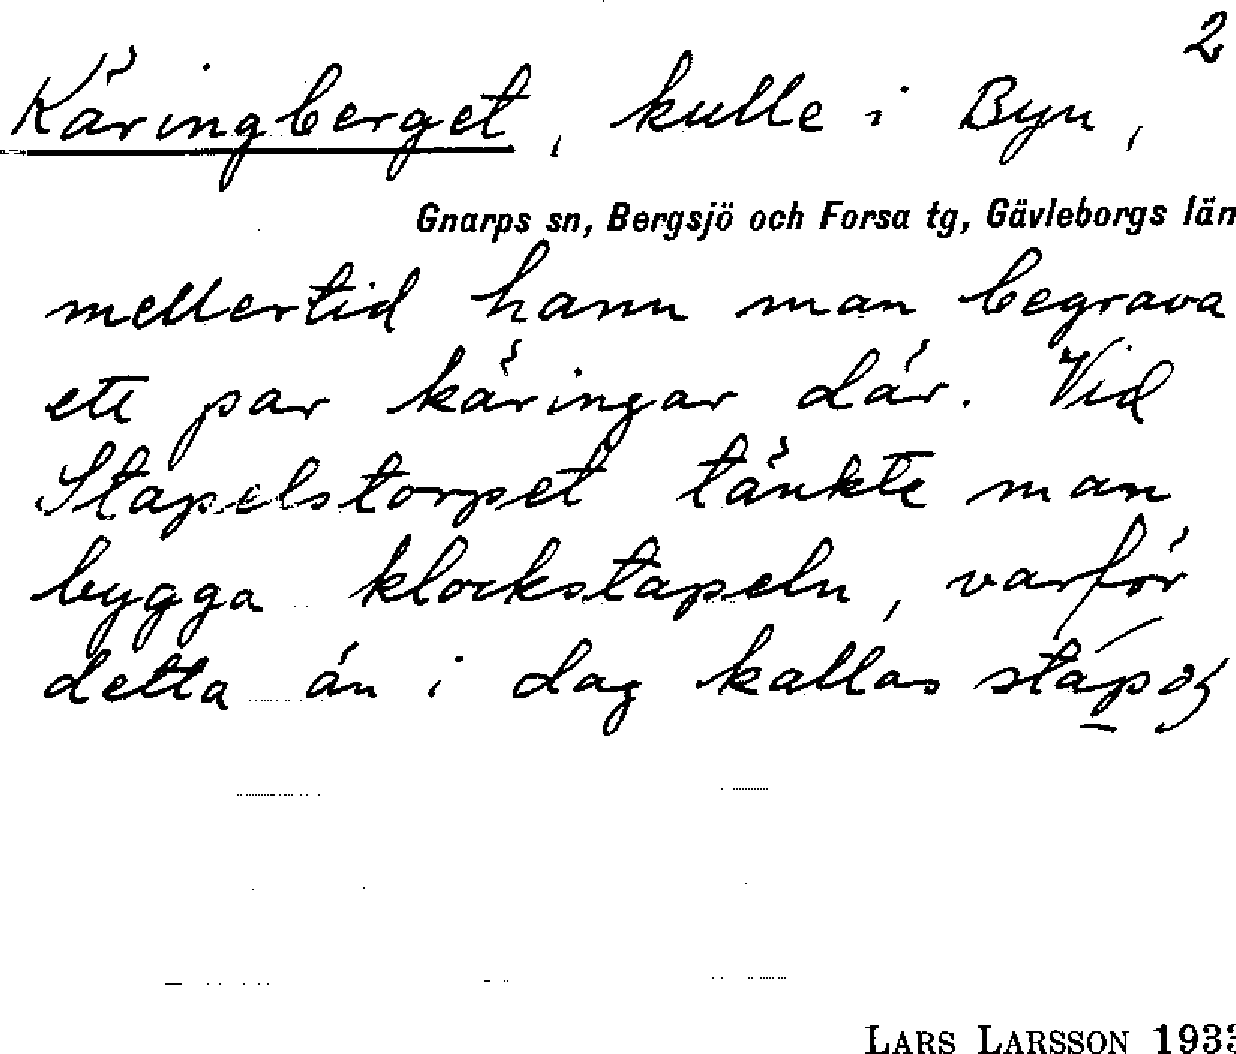 2
Käringberget, kulle i Byn,
Gnarps sn, Bergsjö och Forsa tg, Gävleborgs län
mellertid hann man begrava
ett par käringar där. Vid
Stapelstorpet tänkte man
bygga klockstapeln, varför
detta än i dag kallas
LARS LARSSON